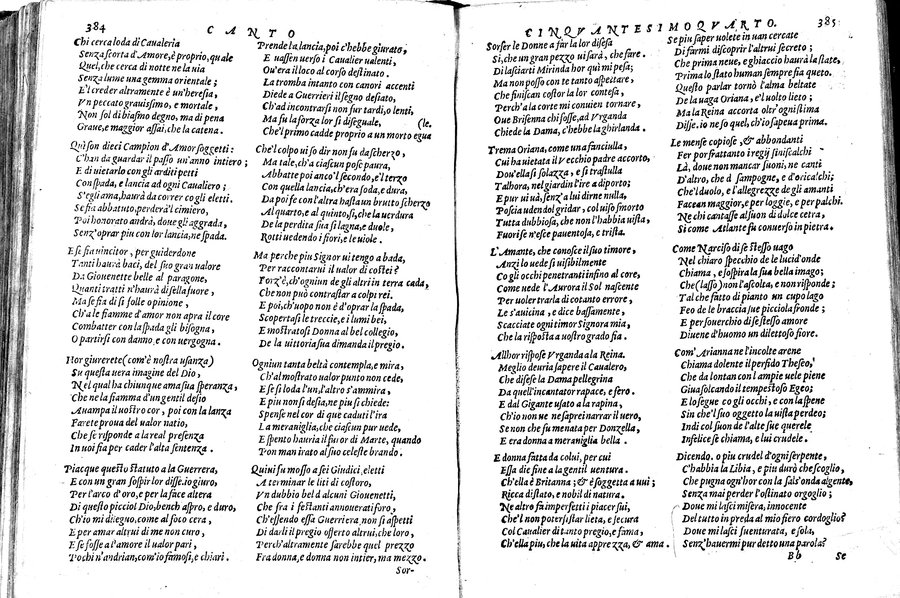 384 CANTO
Chi cerca loda di Caualeria
Senza scorta d'Amore, è proprio, quale
Quel, che cerca di notte ne la uia
Senza lume una gemma orientale;
E'l creder altramente è un'heresia,
Vn peccato grauissimo, e mortale,
Non sol di biasmo degno, ma di pena
Graue, e maggior assai, che la catena.
Qui son dieci Campion d'Amor soggetti:
C'han da guardar il passo un'anno intiero;
E di uietarlo con gli arditi petti
Con spada, e lancia ad ogni Caualiero;
S'egli ama, haurà da correr co gli eletti.
Se fia abbatuto, perderà'l cimiero,
Poi honorato andrà, doue gli aggrada,
Senz'oprar piu con lor lancia, ne spada.
E se fia uincitor, per guiderdone
Tanti haurà baci, del suo gran ualore
Da Giouenette belle al paragone,
Quanti tratti n'haurà di sella fuore,
Ma se fia di si folle opinione,
Ch'a le fiamme d'amor non apra il core
Combatter con la spada gli bisogna,
O partirsi con danno, e con uergogna.
Hor giurerete (com'è nostra usanza)
Su questa uera imagine del Dio,
Nel qual ha chiunque ama sua speranza,
Che ne la fiamma d'un gentil desio
Auampa il uostro cor, poi con la lanza
Farete proua del ualor natio,
Che se risponde a la real presenza
In uoi fia per cader l'alta sentenza.
Piacque questo statuto a la Guerrera,
E con un gran sospir lor disse. io giuro,
Per l'arco d'oro, e per la face altera
Di questo picciol Dio, bench aspro, e duro,
Ch'io mi dileguo, come al foco cera,
E per amar altrui di me non curo,
E se fosse a l'amore il ualor pari,
Pochi n'andrian, com'io famosi, e chiari.
Prende la lancia, poi c'hebbe giurato,
E uassen uerso i Caualier ualenti,
Ou'era il loco al corso destinato.
La tromba intanto con canori accenti
Diede a Guerrieri il segno desiato,
Ch'ad incontrarsi non fur tardi, o lenti,
Ma fu la forza lor si diseguale, (le.
Che'l primo cadde proprio a un morto egua
Che'l colpo ui so dir non fu da scherzo,
Ma tale, ch'a ciascun pose paura,
Abbatte poi anco'l secondo, e'l terzo
Con quella lancia, ch'era soda, e dura,
Da poi fe con l'altra hasta un brutto scherzo
Al quarto, e al quinto, sì, che la uerdura
De la perdita sua si lagna, e duole,
Rotti uedendo i fiori, e le uiole.
Ma perche piu Signor ui tengo a bada,
Per raccontarui il ualor di costei?
Forz'è, ch'ogniun de gli altri in terra cada,
Che non può contrastar a colpi rei.
E poi, ch'uopo non è d'oprar la spada,
Scopertasi le treccie, e i lumi bei,
E mostratosi Donna al bel collegio,
De la uittoria sua dimanda il pregio.
Ogniun tanta beltà contempla, e mira,
Ch'al mostrato ualor punto non cede,
E se si loda l'un, l'altro s'ammira,
E piu non si desia, ne piu si chiede:
Spense nel cor di que caduti l'ira
La merauiglia, che ciascun pur uede,
E spento hauria il fuor di Marte, quando
Pon man irato al suo celeste brando.
Qui ui fu mosso a sei Giudici, eletti
A terminar le liti di costoro,
Vn dubbio bel d alcuni Giouenetti,
Che fra i festanti annouerati foro,
Ch'essendo essa Guerriera, non si aspetti
Di darli il pregio offerto altrui, che loro,
Perch'altramente sarebbe quel prezzo
Fra donna, e donna non intier, ma mezzo.
Sor-
CINQVANTESIMOQVARTO. 385
Sorser le Donne a far la lor difesa
Si, che un gran pezzo ui sarà, che fare.
Di lasciarti Mirinda hor qui mi pesa;
Ma non posso con te tanto aspettare,
Che finiscan costor la lor contesa,
Perch'a la corte mi conuien tornare,
Oue Brisenna chi fosse, ad Vrganda
Chiede la Dama, c'hebbe la ghirlanda.
Trema Oriana, come una fanciulla,
Cui ha uietata il Vecchio padre accorto,
Dou'ella si solazza, e si trastulla
Talhora, nel giardin l'ire a diporto;
E pur ui uà, senz'a lui dirne nulla,
Poscia uden dol gridar, col uiso smorto
Tutta dubbiosa, che non l'habbia uista,
Fuori se n'esce pauentosa, e trista.
L'Amante, che conosce il suo timore,
Anzi lo uede sì uisibilmente
Co gli occhi penetranti infino al core,
Come uede l'Aurora il Sol nascente
Per uoler trarla di cotanto errore,
Le s'auicina, e dice bassamente,
Scacciate ogni timor Signora mia,
Che la risposta a uostro grado fia.
Allhor rispose Vrganda a la Reina.
Meglio deuria sapere il Caualero,
Che difese la Dama pellegrina
Da quell'incantator rapace, e fero.
E dal Gigante usato a la rapina,
Ch'io non ue ne saprei narrar il uero,
Se non che fu menata per Donzella,
E era donna a merauiglia bella.
E donna fatta da colui, per cui
Essa die fine a la gentil uentura.
Ch'ella è Britanna; & è soggetta a uui;
Ricca di stato, e nobil di natura.
Ne altro fia imperfetti i piacer sui,
Che'l non poter istar lieta, e secura
Col Caualier di tanto pregio, e fama,
Ch'ella piu, che la uita apprezza, & ama.
Se piu saper uolete in uan cercate
Di farmi discoprir l'altrui secreto;
Che prima neue, e ghiaccio haurà la state,
Prima lo stato human sempre fia queto.
Questo parlar tornò l'alma beltate
De la uaga Oriana, e'l uolto lieto;
Ma la Reina accorta oltr'ogni stima
Disse. io ne so quel, ch'io sapeua prima.
Le mense copiose, & abbondanti
Fer por fra tanto i regij siniscalchi
Là, doue non mancar suoni, ne canti
D'altro, che di sampogne, e d'oricalchi;
Che'l duolo, e l'allegrezze de gli amanti
Facean maggior, e per loggie, e per palchi.
Ne chi cantasse al suon di dolce cetra,
Si come Atlante fu conuerso in pietra.
Come Narciso di se stesso uago
Nel chiaro specchio de le lucid'onde
Chiama, e sospira la sua bella imago;
Che (lasso) non l'ascolta, e non risponde;
Tal che fatto di pianto un cupo lago
Feo de le braccia sue picciola fronde;
E per souerchio di se stesso amore
Diuene d'huomo un dilettoso fiore.
Com' Arianna ne l'incolte arene
Chiama dolente il perfido Theseo,
Che da lontan con l'ampie uele piene
Gia solcando il tempestoso Egeo;
E lo segue co gli occhi, e con la spene
Sin che'l suo oggetto la uista perdeo;
Indi col suon de l'alte sue querele
Infelice se chiama, e lui crudele.
Dicendo. o piu crudel d'ogni serpente,
C'habbia la Libia, e piu duro che scoglio,
Che pugna ogn'hor con la sals'onda algente,
Senza mai perder l'ostinato orgoglio;
Doue mi lasci misera, innocente
Del tutto in preda al mio fiero cordoglio?
Doue mi lasci suenturata, e sola,
Senz'hauermi pur detto una parola?
Bb Se